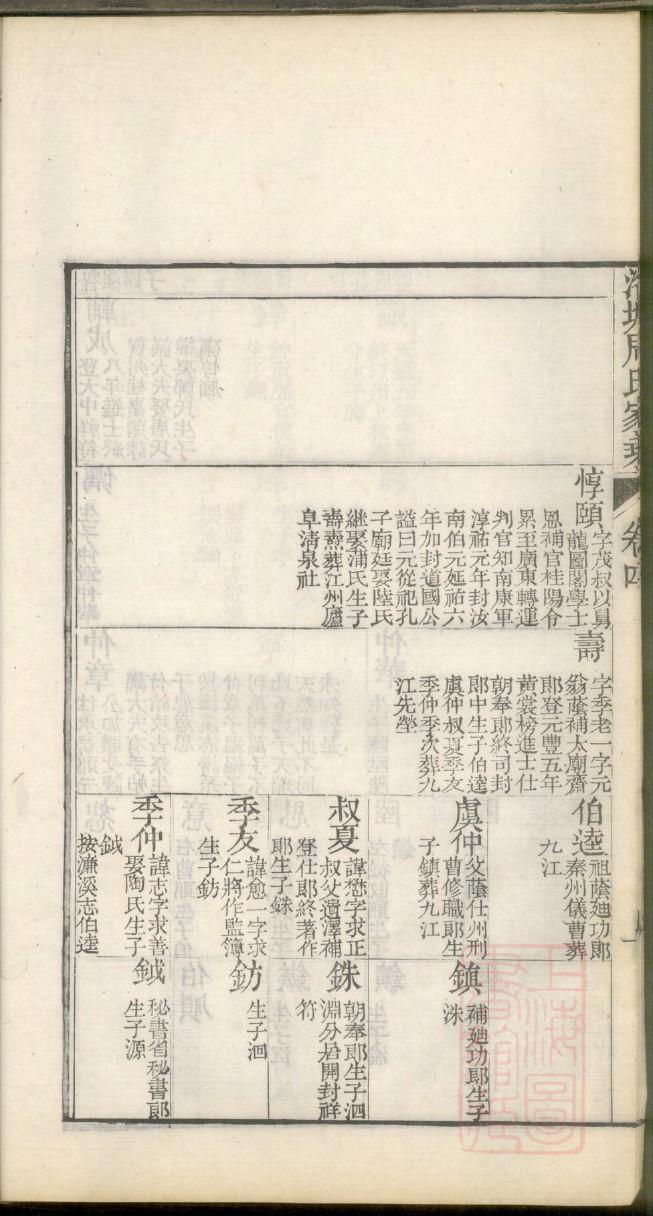 周氏家乘
卷四
惇頤
字茂叔以舅
龍圖閣學士
恩補官桂陽令
累至廣東轉運
判官知南康軍
淳祐元年封汝
南伯元延祐六
年加封道國公
謚曰元從祀孔
子廟廷娶陸氏
繼娶蒲氏生子
壽燾葬江州廬
阜淸泉社
壽
字季老一字元
翁蔭補太廟齋
郎登元豐五年
黃裳榜進士仕
朝奉郎終司封
郎中生子伯逵
虞仲叔夏季友
季仲季次葬九
江先塋
伯逵
祖蔭廸功郎
秦州儀曹葬
九江
虞仲
父蔭仕州刑
曹修職郎生
子鎮葬九江
鎮
補廸功郎生子
洙
叔夏
諱懋字求正
叔父遺澤補
登仕郎終著作
郎生子銖
銖
朝奉郎生子泗
淵分居開封祥
符
季友
諱愈一字求
仁將作監簿
生子鈁
鈁
生子洄
季仲
諱志字求善
娶陶氏生子
鉞
按濂溪志伯逵
鉞
秘書省秘書郎
生子源
上海圖書館藏